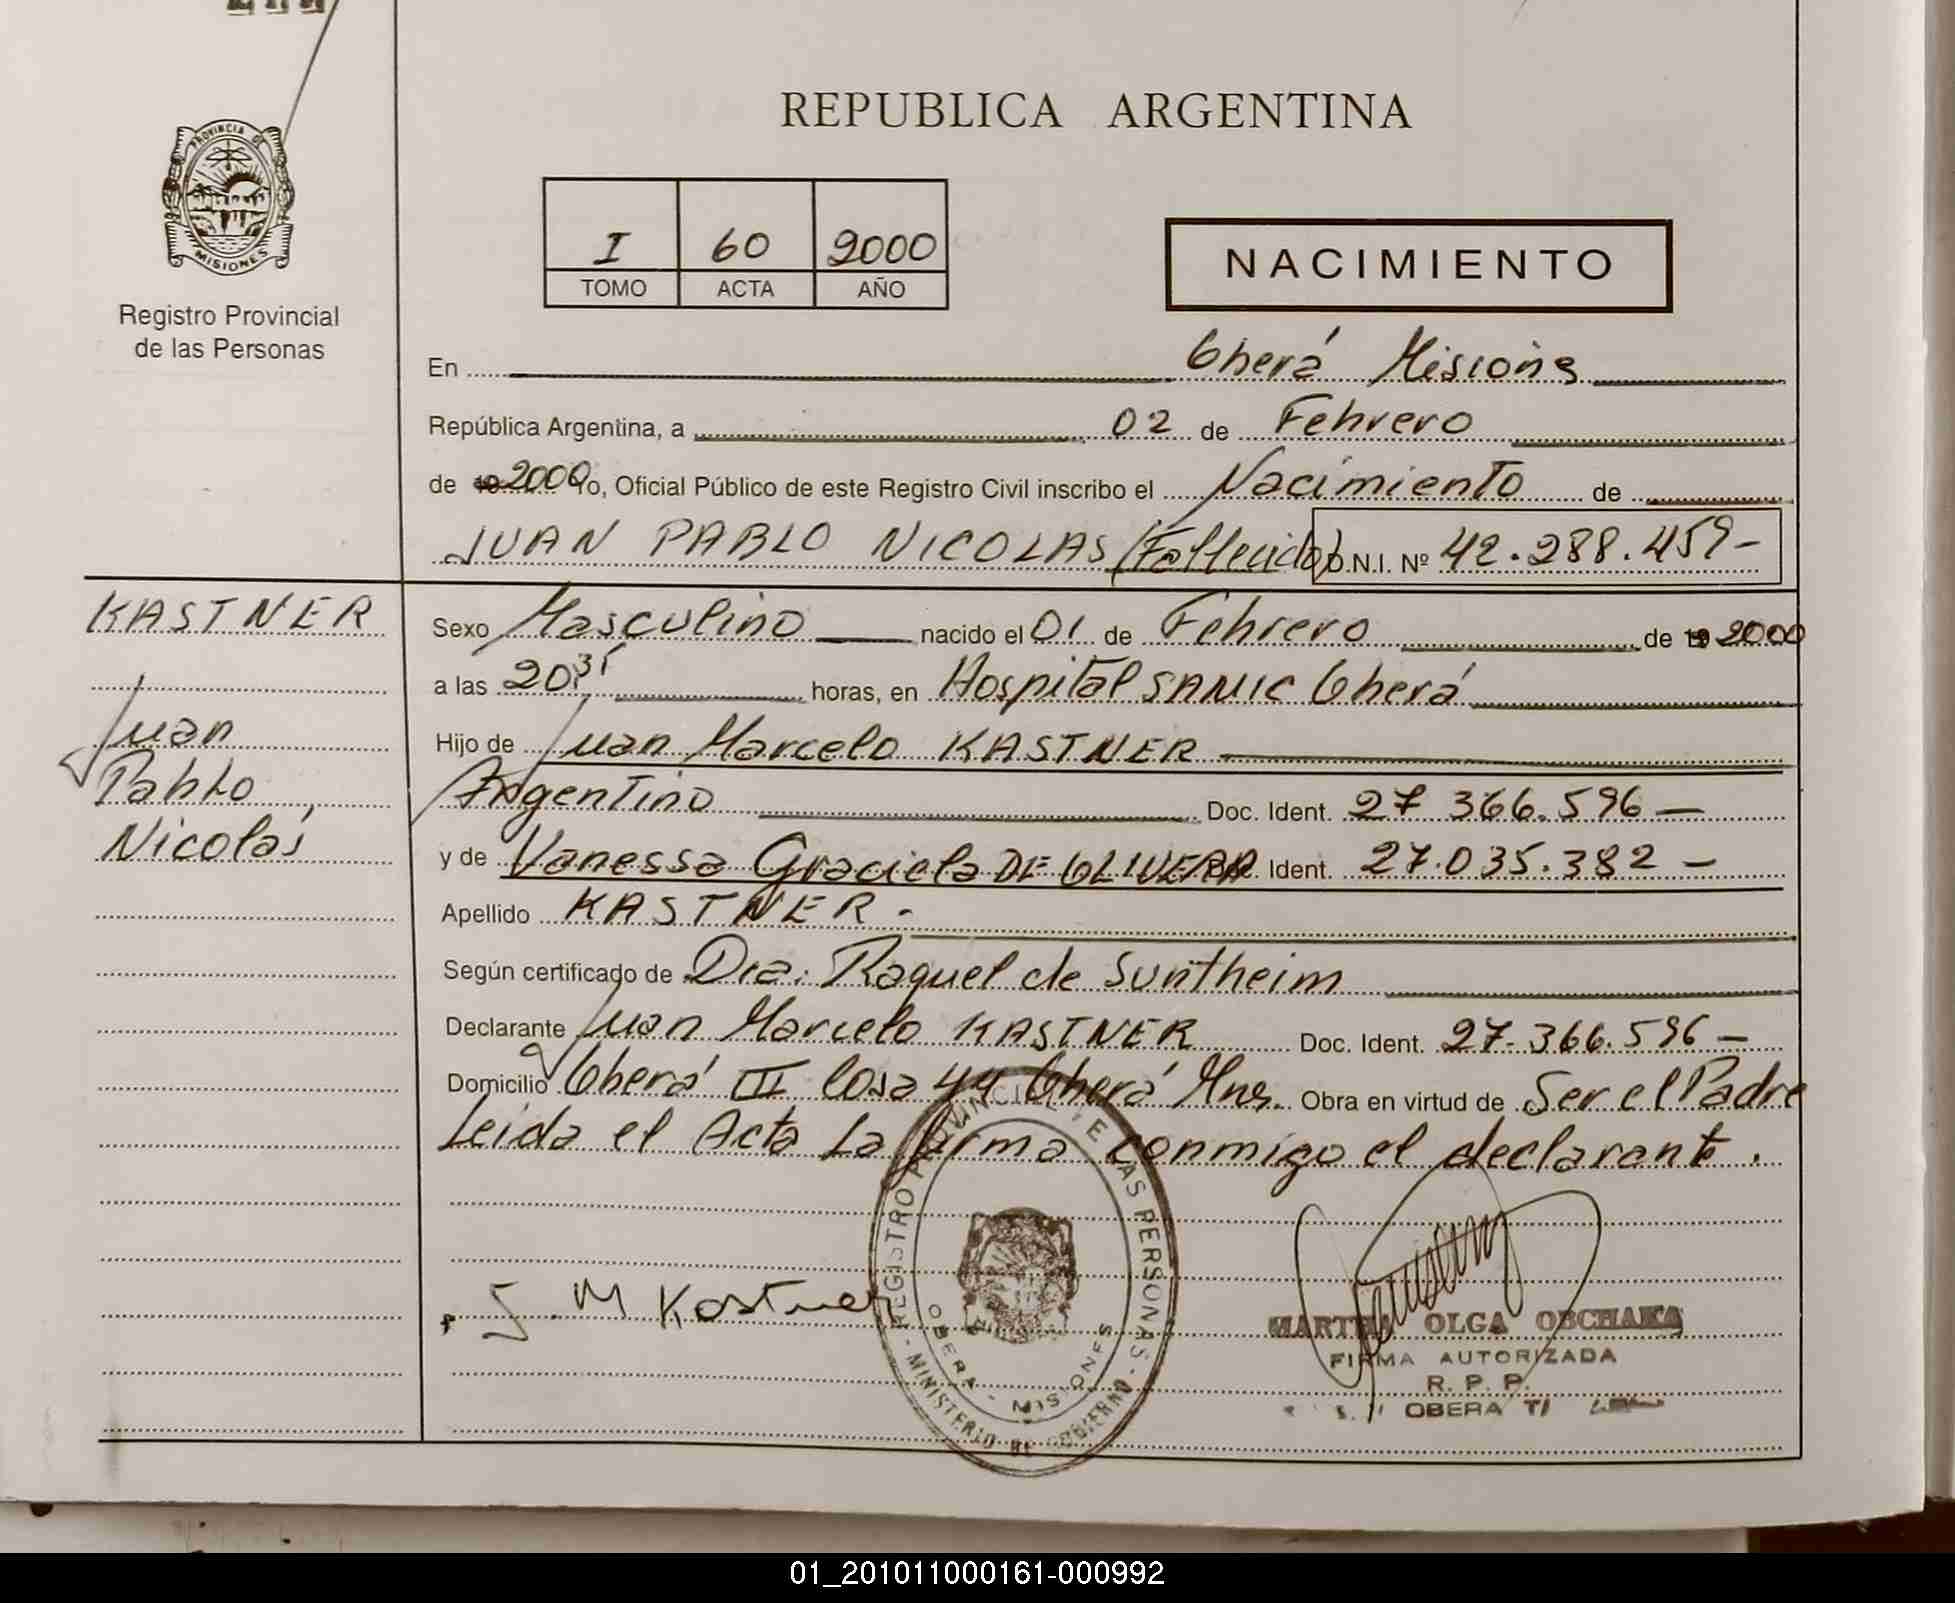 PROVINCIA DE
MISIONES
Registro Provincial
de las Personas
REPUBLICA ARGENTINA
I 60 2000
TOMO ACTA AÑO
NACIMIENTO
En Oberá Misiones
República Argentina, a 02 de Febrero
de 19 2000 Yo, Oficial Público de este Registro Civil inscribo el Nacimiento de
JUAN PABLO NICOLAS (Fallecido) D.N.I. Nº 42.288.459-
KASTNER
Juan
Pablo
Nicolás
Sexo Masculino nacido el 01 de Febrero de 19 2000
a las 20:35 horas, en Hospital SAMIC Oberá
Hijo de Juan Marcelo KASTNER
Argentino Doc. Ident. 27 366.596-
y de Vanessa Graciela DE OLIVERA Doc. Ident. 27.035.382-
Apellido KASTNER.
Según certificado de Dra: Raquel de Suntheim
Declarante Juan Marcelo KASTNER Doc. Ident. 27.366.596-
Domicilio Oberá III Casa 44 Oberá Mns. Obra en virtud de Ser el Padre
Leida el Acta La firma conmigo el declarante.
REGISTRO PROVINCIAL DE LAS PERSONAS
MINISTERIO DE GOBIERNO
OBERA - MISIONES
J. M Kastner
MARTHA OLGA OBCHAKA
FIRMA AUTORIZADA
R. P. P.
OBERA
01_201011000161-000992